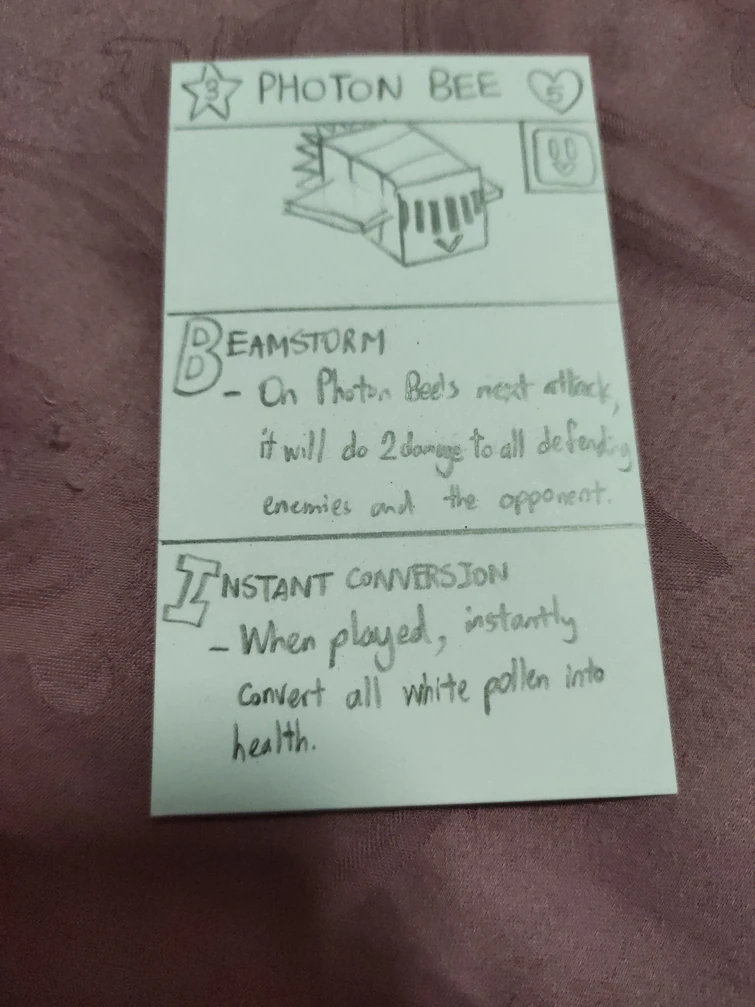 3 PHOTON BEE 5
BEAMSTORM
- On Photon Bee's next attack,
it will do 2 damage to all defending
enemies and the opponent.
INSTANT CONVERSION
- When played, instantly
convert all white pollen into
health.